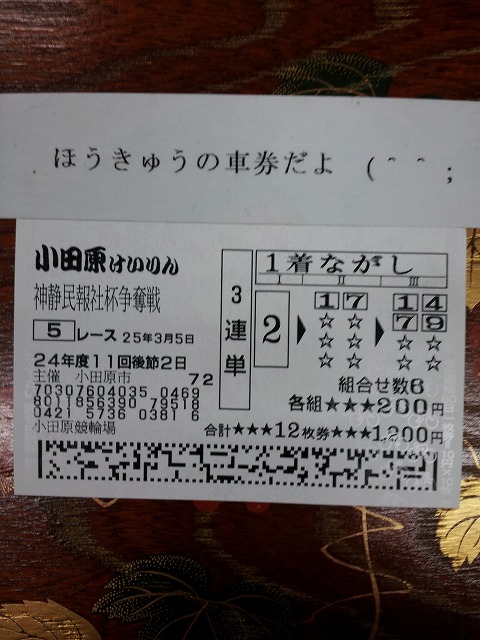 ほうきゅうの車券だよ (^^;
小田原けいりん
神静民報社杯争奪戦
5 レース 25年3月5日
24年度11回後節2日
主催 小田原市 72
70307604035 0469
80011355390 79518
0421 5736 03816
小田原競輪場
3連単
1着ながし
I II III
2 ▶ 17 ▶ 14
☆☆ 79
☆☆ ☆☆
☆☆ ☆☆
組合せ数6
各組★★★200円
合計★★★12枚券★★★1,200円